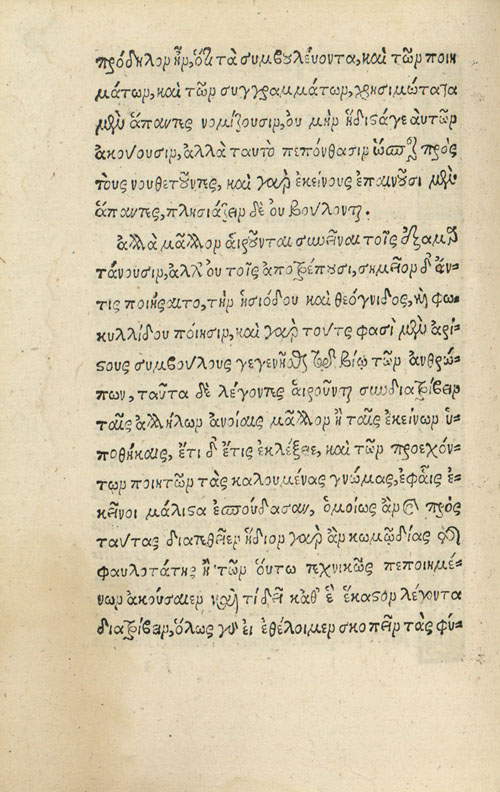 πρόδηλον ἦν, ὅτι τὰ συμβουλέυοντα, καὶ τῶν ποιη
μάτων, καὶ τῶν συγγραμμάτων, χρησιμώτατα
μὲν ἅπαντες νομίζουσιν, ὀυ μὴν ἥδιστά γε ἀυτῶν
ἀκούουσιν, ἀλλὰ ταυτὸ πεπόνθασιν ὥσπερ πρὸς
τοὺς νουθετοῦντας, καὶ γὰρ ἐκείνους ἐπαινοῦσι μὲν
ἅπαντες, πλησιάζειν δὲ ὀυ βούλονται.
ἀλλὰ μᾶλλον ἁιροῦνται συνεῖναι τοῖς ἐξαμαρ
τάνουσιν, ἀλλ' ὀυ τοῖς ἀποτρέπουσι, σημεῖον δ' ἄν-
τις ποιήσαιτο, τὴν ἡσιόδου καὶ θεόγνιδος, καὶ φω-
κυλλίδου πόιησιν, καὶ γὰρ τούτς φασὶ μὲν ἀρί-
στους συμβούλους γεγενῆσθαι τῷ βίῳ τῶν ἀνθρώ-
πων, ταῦτα δὲ λέγοντες ἁιροῦνται συνδιατρίβειν
ταῖς ἀλλήλων ἀνοίαις μᾶλλον ἢ ταῖς ἐκείνων ὑ-
ποθήκαις, ἔτι δ' ἔιτις ἐκλέξειε, καὶ τῶν προεχόν-
των ποιητῶν τὰς καλουμένας γνώμας, ἐφ' αἷς ἐ-
κεῖνοι μάλιστα ἐσπούδασαν, ὁμοίως ἂν καὶ πρὸς
ταύτας διατεθεῖεν ἥδιον γὰρ ἂν κωμῳδίας τῆς
φαυλοτάτης ἢ τῶν ὅυτω τεχνικῶς πεποιημέ-
νων ἀκούσαιεν καὶ τί δεῖ καθ' ἓν ἕκαστον λέγοντα
διατρίβειν, ὅλως γὰρ ἐι ἐθέλοιμεν σκοπεῖν τὰς φύ-